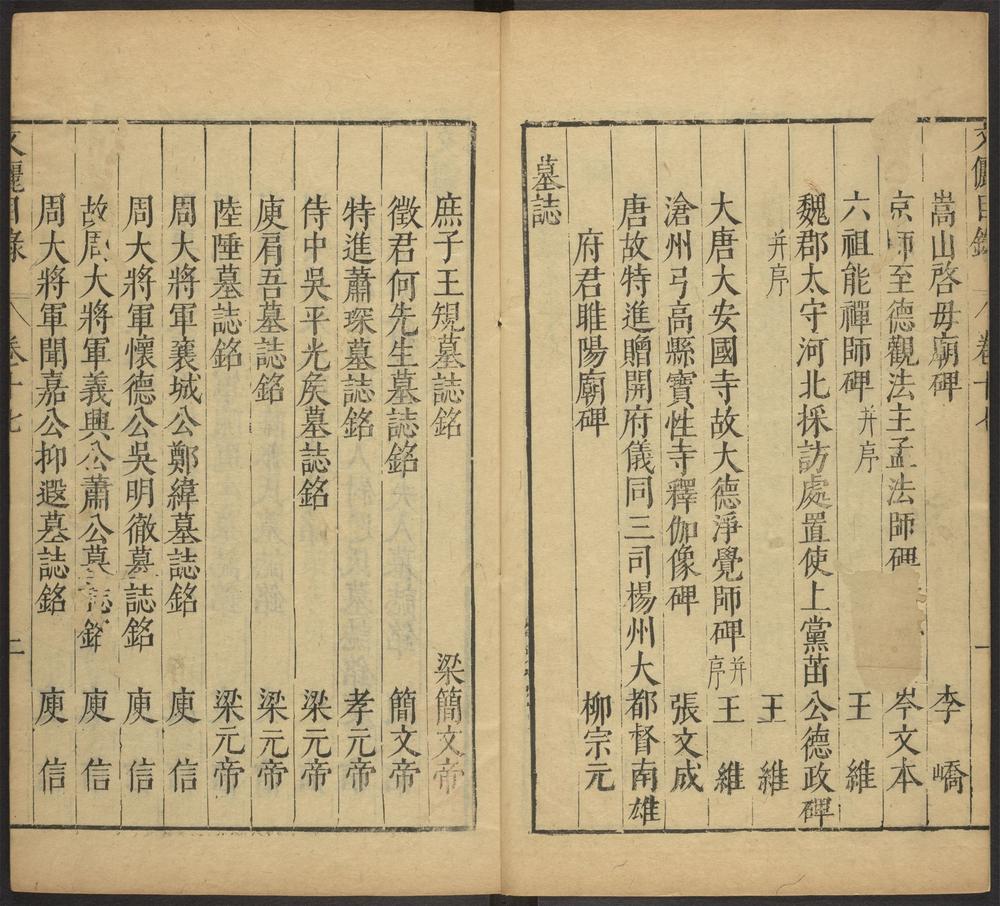 文儷目錄 卷十七 一
嵩山啓母廟碑 李嶠
京師至德觀法主孟法師碑 岑文本
六祖能禪師碑并序 王維
魏郡太守河北採訪處置使上黨苗公德政碑
并序 王維
大唐大安國寺故大德淨覺師碑并序 王維
滄州弓高縣寶性寺釋伽像碑 張文成
唐故特進贈開府儀同三司楊州大都督南雄
府君睢陽廟碑 柳宗元
墓誌
庶子王規墓誌銘 梁簡文帝
徵君何先生墓誌銘 簡文帝
特進蕭琛墓誌銘 孝元帝
侍中吳平光矦墓誌銘 梁元帝
庾肩吾墓誌銘 梁元帝
陸倕墓誌銘 梁元帝
周大將軍襄城公鄭緯墓誌銘 庾信
周大將軍懷德公吳明徹墓誌銘 庾信
故周大將軍義興公蕭公墓誌銘 庾信
周大將軍聞嘉公抑遐墓誌銘 庾信
文儷目錄 卷十七 二